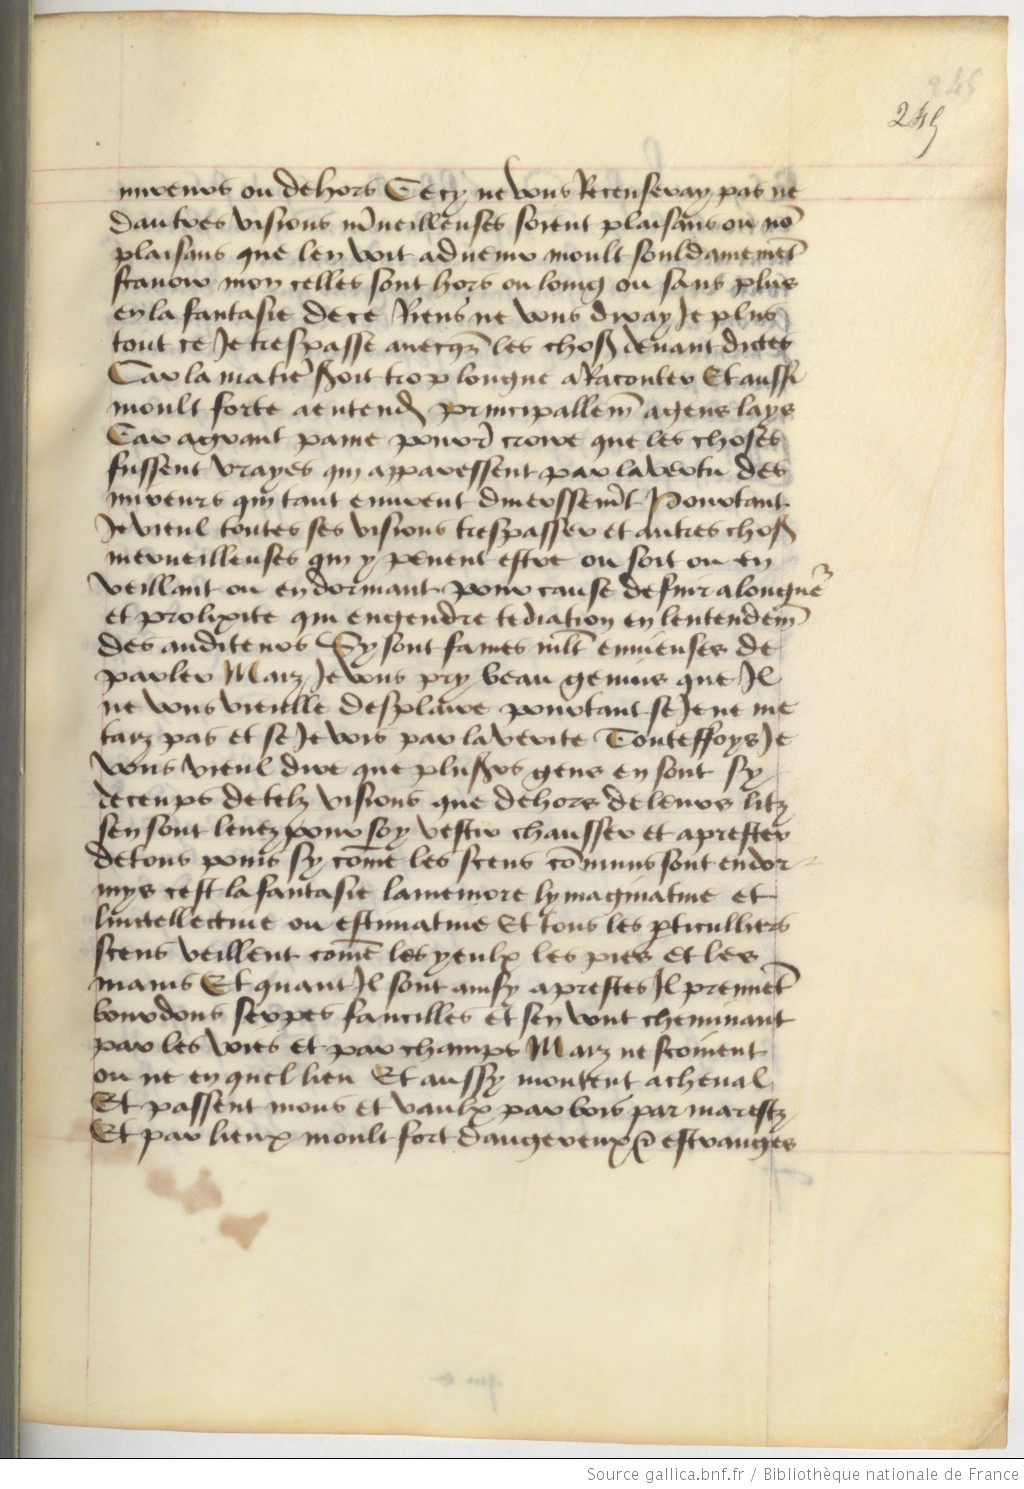 245
245
mirenrs ou dehors Cecy ne vous Recenseray pas ne
dautres visions mˀueilleuses soient plaisans ou nō
plaisans que len voit aduenir moult souldainemēt
scauoir mon celles sont hors ou loing ou sans plus
en la fantasie de ce Riens ne vous diray Je plus
tout ce Je trespasse auecqȝ les choß deuant dictes
Car la matieˀ ßoit trop longue a Raconter Et aussi
moult forte a entendˀ principallem̄ a gens lays
Car a grant paine pourˀ croire que les choses
fussent vrayes qui apparessent par la vertu des
mireurs qui tant enuirent diuerssem̄t Pourtant
Je vieul toutes ses visions trespasser et autres choß
merueilleuses qui y peuent estre ou soit ou en
veillant ou en dormant pour cause de fuir a longueˀ
et prolixite qui engendre tediation en lentendem̄
des auditeurs Sy sont fames mlt̄ enuieuses de
parler Maiz Je vous pry beau genius que Il
ne vous vieille desplaire pourtant se Je ne me
taiz pas et se Je vois par la verite Touteffoys Je
vous vieul dire que plußrs gens en sont sy
deceups de telz visions que dehors de leurs litz
sen sont leuez pour soy vestir chausser et aprester
de tous poins sy cōme les scens cōmuns sont endor-
mys cest la fantasie la memore lymaginatiue et
lintellectiue ou estimatiue Et tous les pticulliers
scens veillent comē les yeulx les pies et les
mains Et quant Il sont ainsy aprestes Il prennēt
bourdons serpes faucilles et sen vont cheminant
par les voies et par champs Maiz ne scoiuent
ou ne en quel lieu Et aussy montent a cheual
Et passent mons et vaulx par bois par marestz
Et par lieux moult fort dangereux & estranges
Source gallica.bnf.fr / Bibliothèque nationale de France